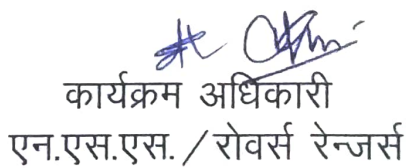 कार्यक्रम अधिकारी
एन.एस.एस. / रोवर्स रेन्जर्स